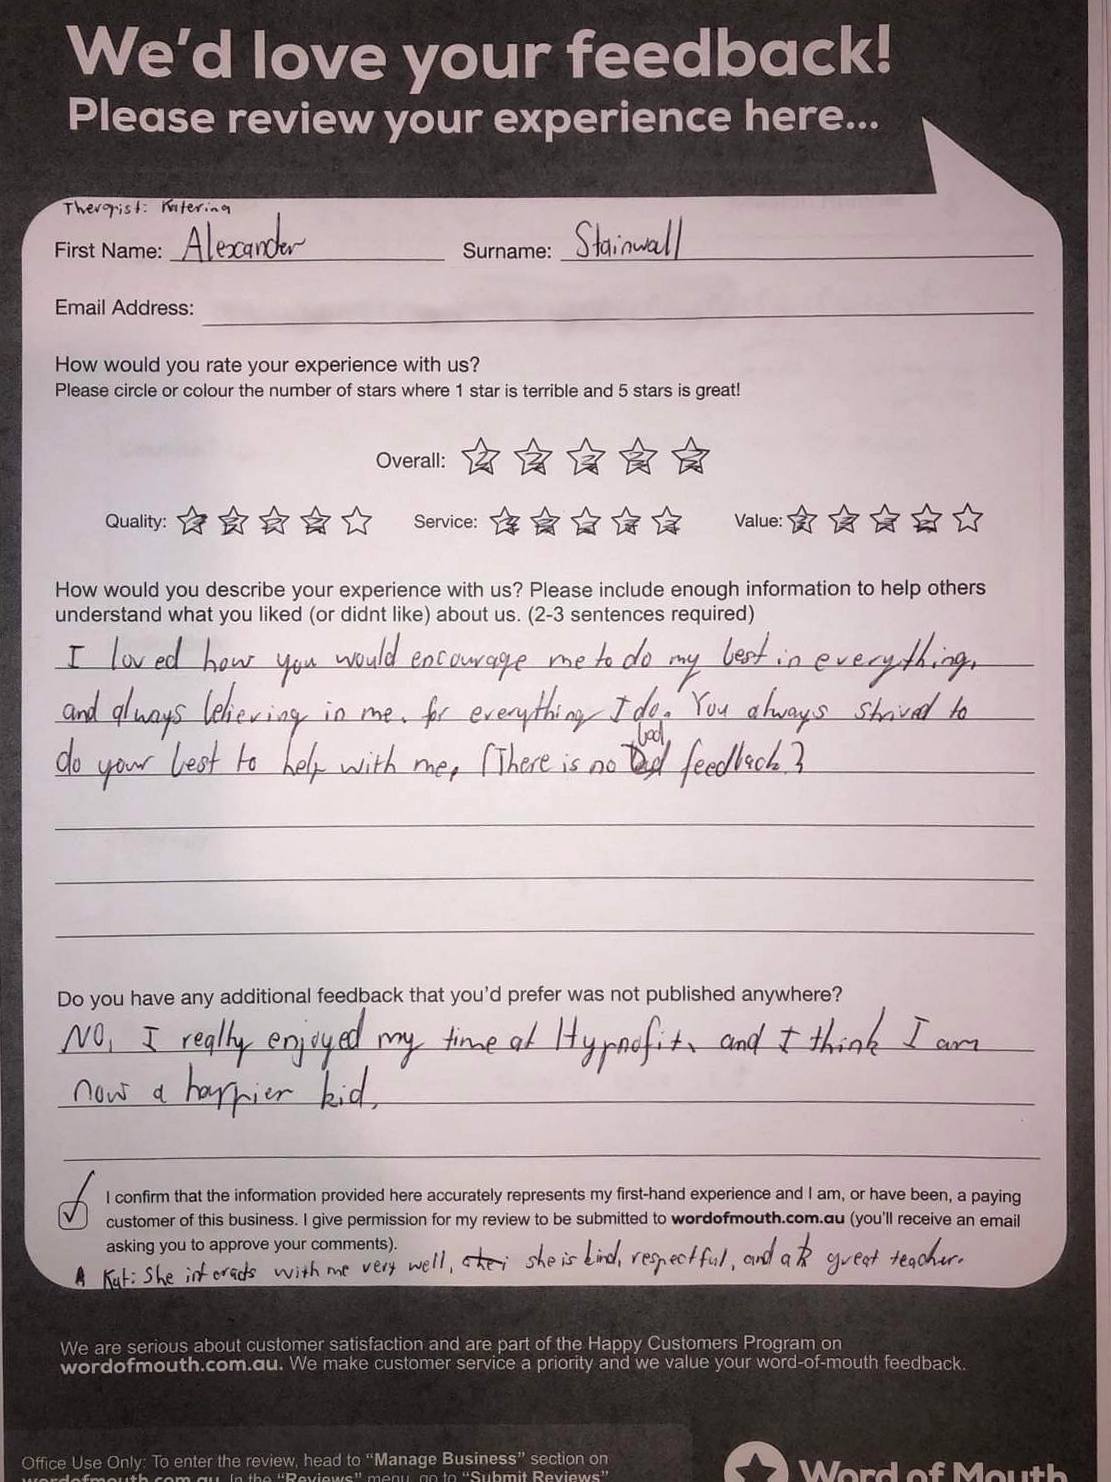 We'd love your feedback!
Please review your experience here...
Therapist: Katerina
First Name: Alexander Surname: Stainwall
Email Address:
How would you rate your experience with us?
Please circle or colour the number of stars where 1 star is terrible and 5 stars is great!
Overall:
Quality: Service: Value:
How would you describe your experience with us? Please include enough information to help others
understand what you liked (or didnt like) about us. (2-3 sentences required)
I loved how you would encourage me to do my best in everything,
and always believing in me, for everything I do. You always strived to
bad
do your best to help with me, (There is no feedback)
Do you have any additional feedback that you'd prefer was not published anywhere?
NO, I really enjoyed my time at Hypnofit, and I think I am
now a happier kid.
I confirm that the information provided here accurately represents my first-hand experience and I am, or have been, a paying
customer of this business. I give permission for my review to be submitted to wordofmouth.com.au (you'll receive an email
asking you to approve your comments).
Kat: She interacts with me very well, she is kind, respectful, and a great teacher.
We are serious about customer satisfaction and are part of the Happy Customers Program on
wordofmouth.com.au. We make customer service a priority and we value your word-of-mouth feedback.
Office Use Only: To enter the review, head to "Manage Business" section on
wordofmouth.com.au. In the "Reviews" menu, go to "Submit Reviews"
Word of Mouth